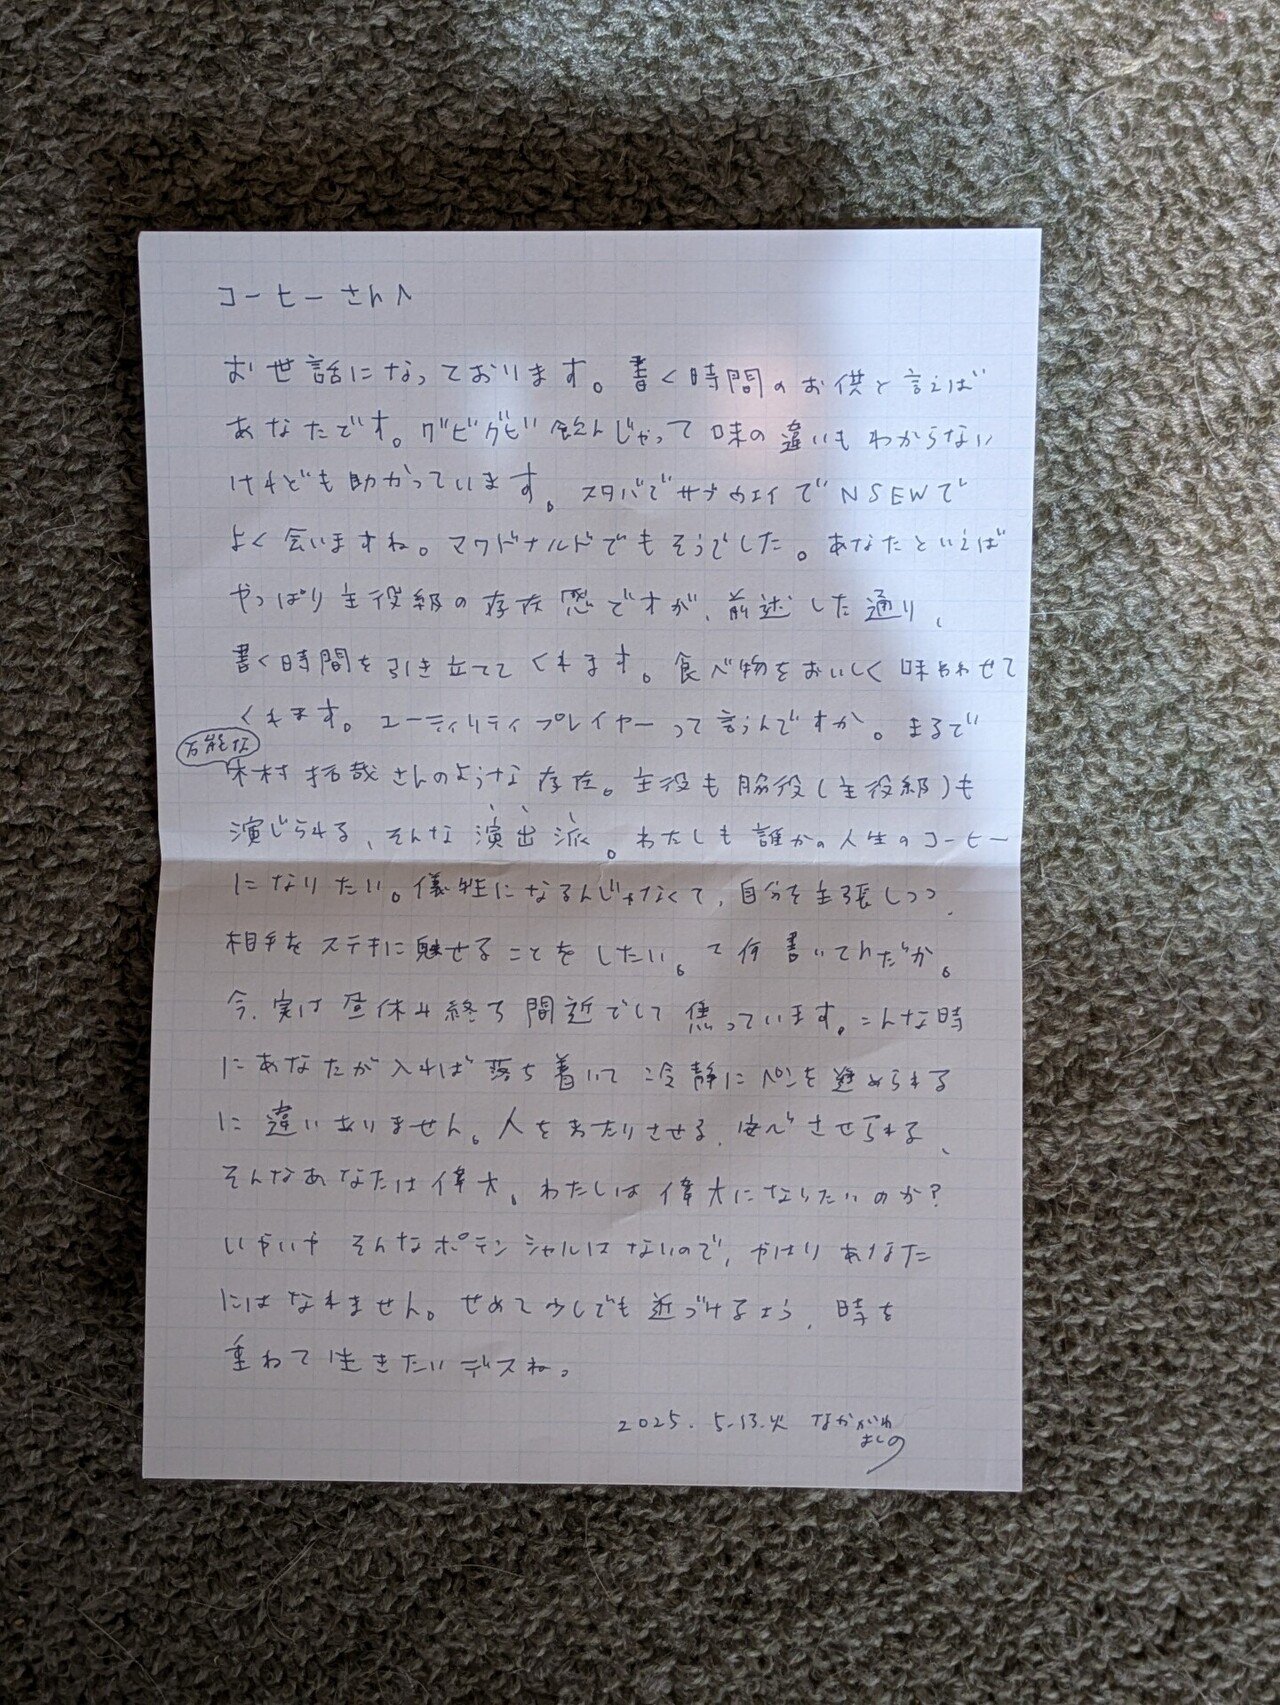 コーヒーさんへ
お世話になっております。書く時間のお供と言えば
あなたです。グビグビ飲んじゃって味の違いもわからない
けれども助かっています。スタバでサブウェイでNSEWで
よく会いますね。マクドナルドでもそうでした。あなたといえば
やっぱり主役級の存在感ですが、前述した通り、
書く時間を引き立ててくれます。食べ物をおいしく味わわせて
くれます。ユーティリティプレイヤーって言うんですか。まるで
万能な
木村拓哉さんのような存在。主役も脇役(主役級)も
演じられる、そんな演出派。わたしも誰かの人生のコーヒー
になりたい。儀牲になるんじゃなくて、自分を主張しつつ、
相手をステキに魅せることをしたい。て何書いてんだか。
今、実は昼休み終了間近でして焦っています。こんな時
にあなたが入れば落ち着いて冷静にペンを進められる
に違いありません。人をまたりさせる、安心させられる、
そんなあなたは偉大。わたしは偉大になりたいのか?
いやいやそんなポテンシャルはないので、やはりあなた
にはなれません。せめて少しでも近づけるよう、時を
重ねて生きたいデスね。
2025.5.13.火 なかがわ
よしの